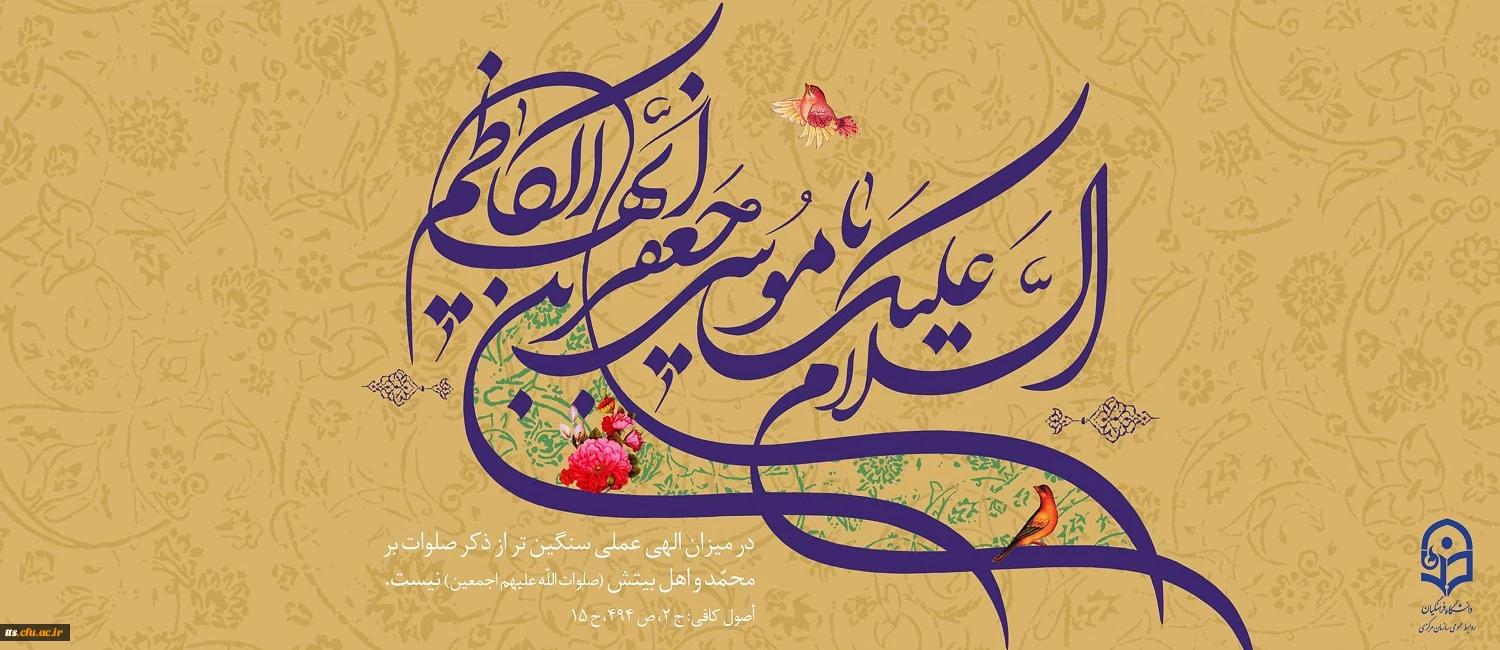 السَّلام علیکَ یا مُوسَی بن جَعفر اَیّها الکاظم
در میزان الهی عملی سنگین تر از ذکر صلوات بر
محمّد و اهل بیتش (صلوات اللّه علیهم اجمعین) نیست.
اُصول کافی: ج ۲، ص ۴۹۴، ح ۱۵
دانشگاه فرهنگیان
روابط عمومی سازمان مرکزی
tts.cfu.ac.ir